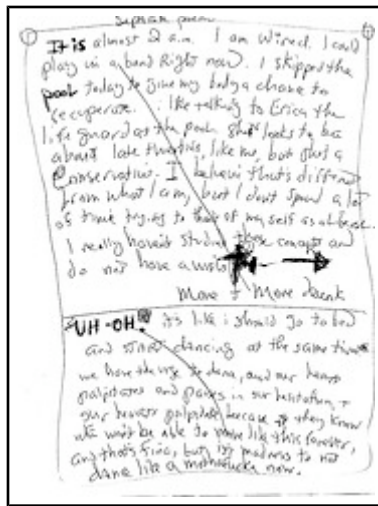 It is almost 2 a.m. I am wired. I could
play in a band Right now. I skipped the
pool today to give my body a chance to
recuperate. I like talking to Erica the
life guard at the pool. She looks to be
about late thirties, like me, but she's a
Conservative. I believe that's different
from what I am, but I don't spend a lot
of time trying to think of my self as
I really haven't studied those concepts and
do not have a
more more drunk
UH-OH. it's like i should go to bed
and start dancing at the same time.
we have the urge to dance, and our hearts
palpitates and pauses in our hesitation
our hearts palpitate because they know
we won't be able to move like this forever,
and that's fine, but it's madness to not
dance like a mothafucka now.